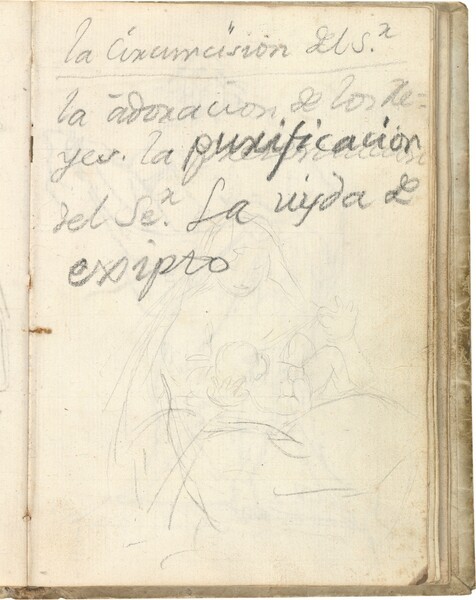 la circuncision del S.r
la adoracion de los Re-
yes. la purificacion
del Se.r La uyda de
exipto